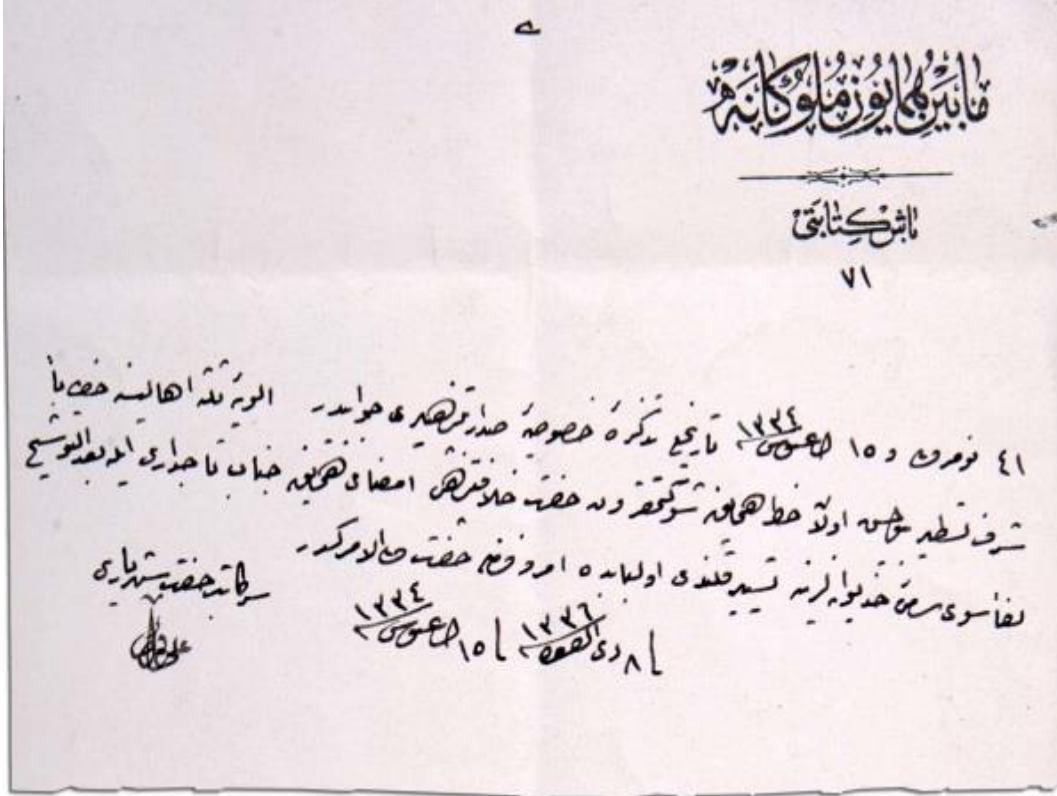 مابين همايون ملوكانه
باش كتابتى
٧١
٤١ نومرولى و ١٥ اغستوس ١٣٣٤ تاريخلى تذكرۀ خصوصيۀ صدارتپناهيلرى جوابيدر الويۀ ثلثه اهاليسنه خطاباً
شرف تسطير اولان خط همايون شوكتمقرون حضرت خلافتپناهى امضاى همايون جناب تاجدارى ايله بعد التوشيح
لفاً سوى خديوانه لرينه تسيير قلندى اولبابده امر و فرمان حضرت ولى الامركدر
٨ ذى القعده ١٣٣٦ ١٥ اغستوس ١٣٣٤
سركاتب حضرت شهريارى
على فؤاد